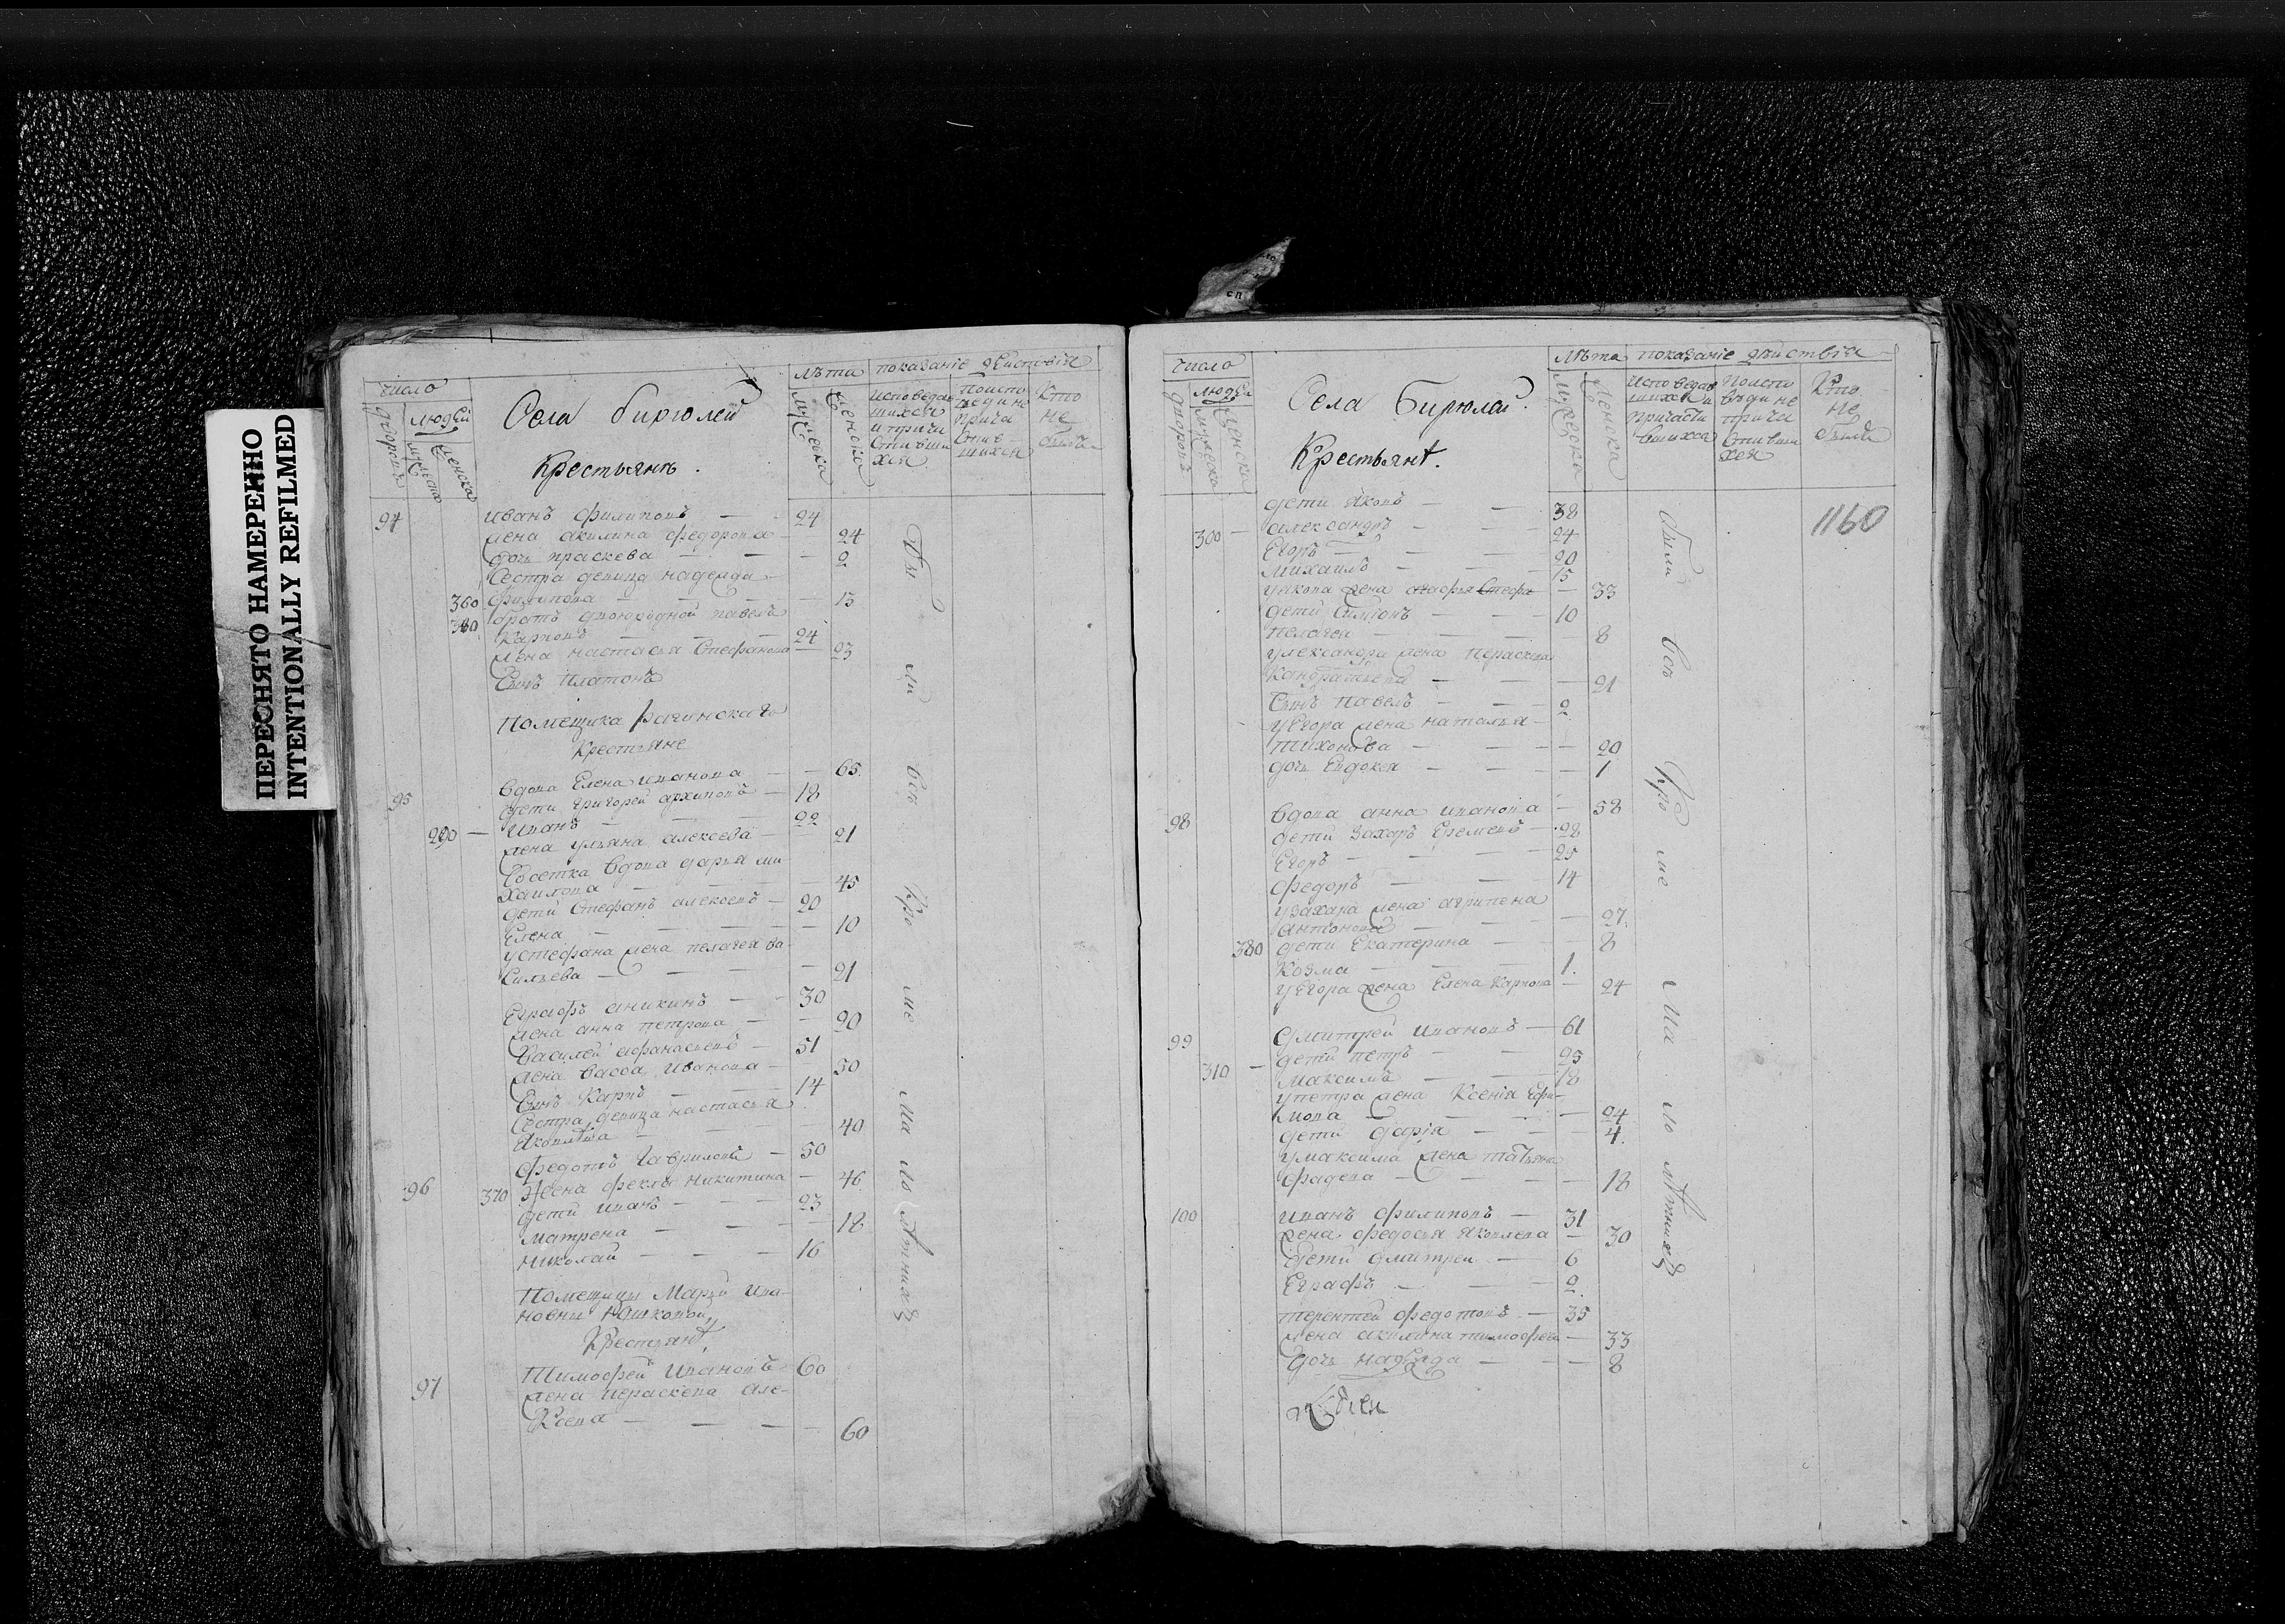 ПЕРЕСНЯТО НАМЕРЕННО
INTENTIONALLY REFILMED
число
дворовъ
людей
мужеска
женска
Села бирюлей
Крестьянъ.
лѣта
мужеска
женска
показаніе действія
исповедав
шихся
и прича
стивши
хся
Кто
не
былъ
94
иванъ филиповъ — 24
жена акилина федорова — 24
дочь праскева — 2
Сестра девица надежда
360 филипова — 13
380 братъ двоюродной павелъ
Карповъ — 24
жена настасья Стефанова — 23
Сынъ Платонъ
Помещика рагинскаго
Крестьяне
95
вдова Елена иванова — 65
дети григорей архиповъ — 18
290 — иванъ — 22
жена ульяна алексева — 21
вдова дарья ми-
хаилова — 45
дети Стефанъ алексевъ — 20
Елена — 10
устефана жена пелагея ва-
сильева — 21
Еграфъ аникинъ — 30
жена анна петрова — 20
Василей афанасьевъ — 51
жена васса иванова — 50
Сынъ Карпъ — 14
Сестра девица настасья
— 40
федотъ Гавриловъ — 50
96
370 Жена фекла никитина — 46
дети иванъ — 23
матрена — 18
николай — 16
Помещицы Марьи ива-
новны Юшковой
Крестьянъ
97
Тимофей Ивановъ 60
жена параскева але-
ксева — 60
Бы ли всѣ Кро ме Ма ло лѣтнихъ
число
дворовъ
людей
мужеска
женска
Села Бирюлей.
Крестьянъ.
лѣта
мужеска
женска
показаніе действія
Исповедав
шихся и
причасти
вшихся
Поиспо
ведине
прича
стивши
хся
Кто
не
былъ
1160
дети Яковъ — 38
300 — александръ — 24
Егоръ — 20
Михаилъ — 15
уякова жена агафья Стефа — 33
дети Симіонъ — 10
Пелагея — 8
улександра жена Параскева
Кандратьева — 21
Сынъ Павелъ — 2
уЕгора жена наталья —
тихонова — 20
дочь Евдокея — 1
98
вдова анна иванова — 58
дети Захаръ Еремевъ — 28
Егоръ — 25
федоръ — 14
узахара жена агрипена
антонова — 27
380 дети Екатерина — 8
Козма — 1.
уЕгора жена Елена Карпова — 24
99
дмитрей ивановъ — 61
дети петръ — 25
310 — Максимъ — 18
упетра жена Ксенія Ефи-
мова — 24
дети дарія — 4
умаксима жена татьяна
фадева — 18
100
иванъ филиповъ — 31
жена федосья яковлева — 30
дети дмитрей — 6
Еграфъ — 2
терентей федотовъ — 35
жена акилина тимофева — 33
дочь надежда — 8
были всѣ Кро ме Ма ло лѣтнихъ